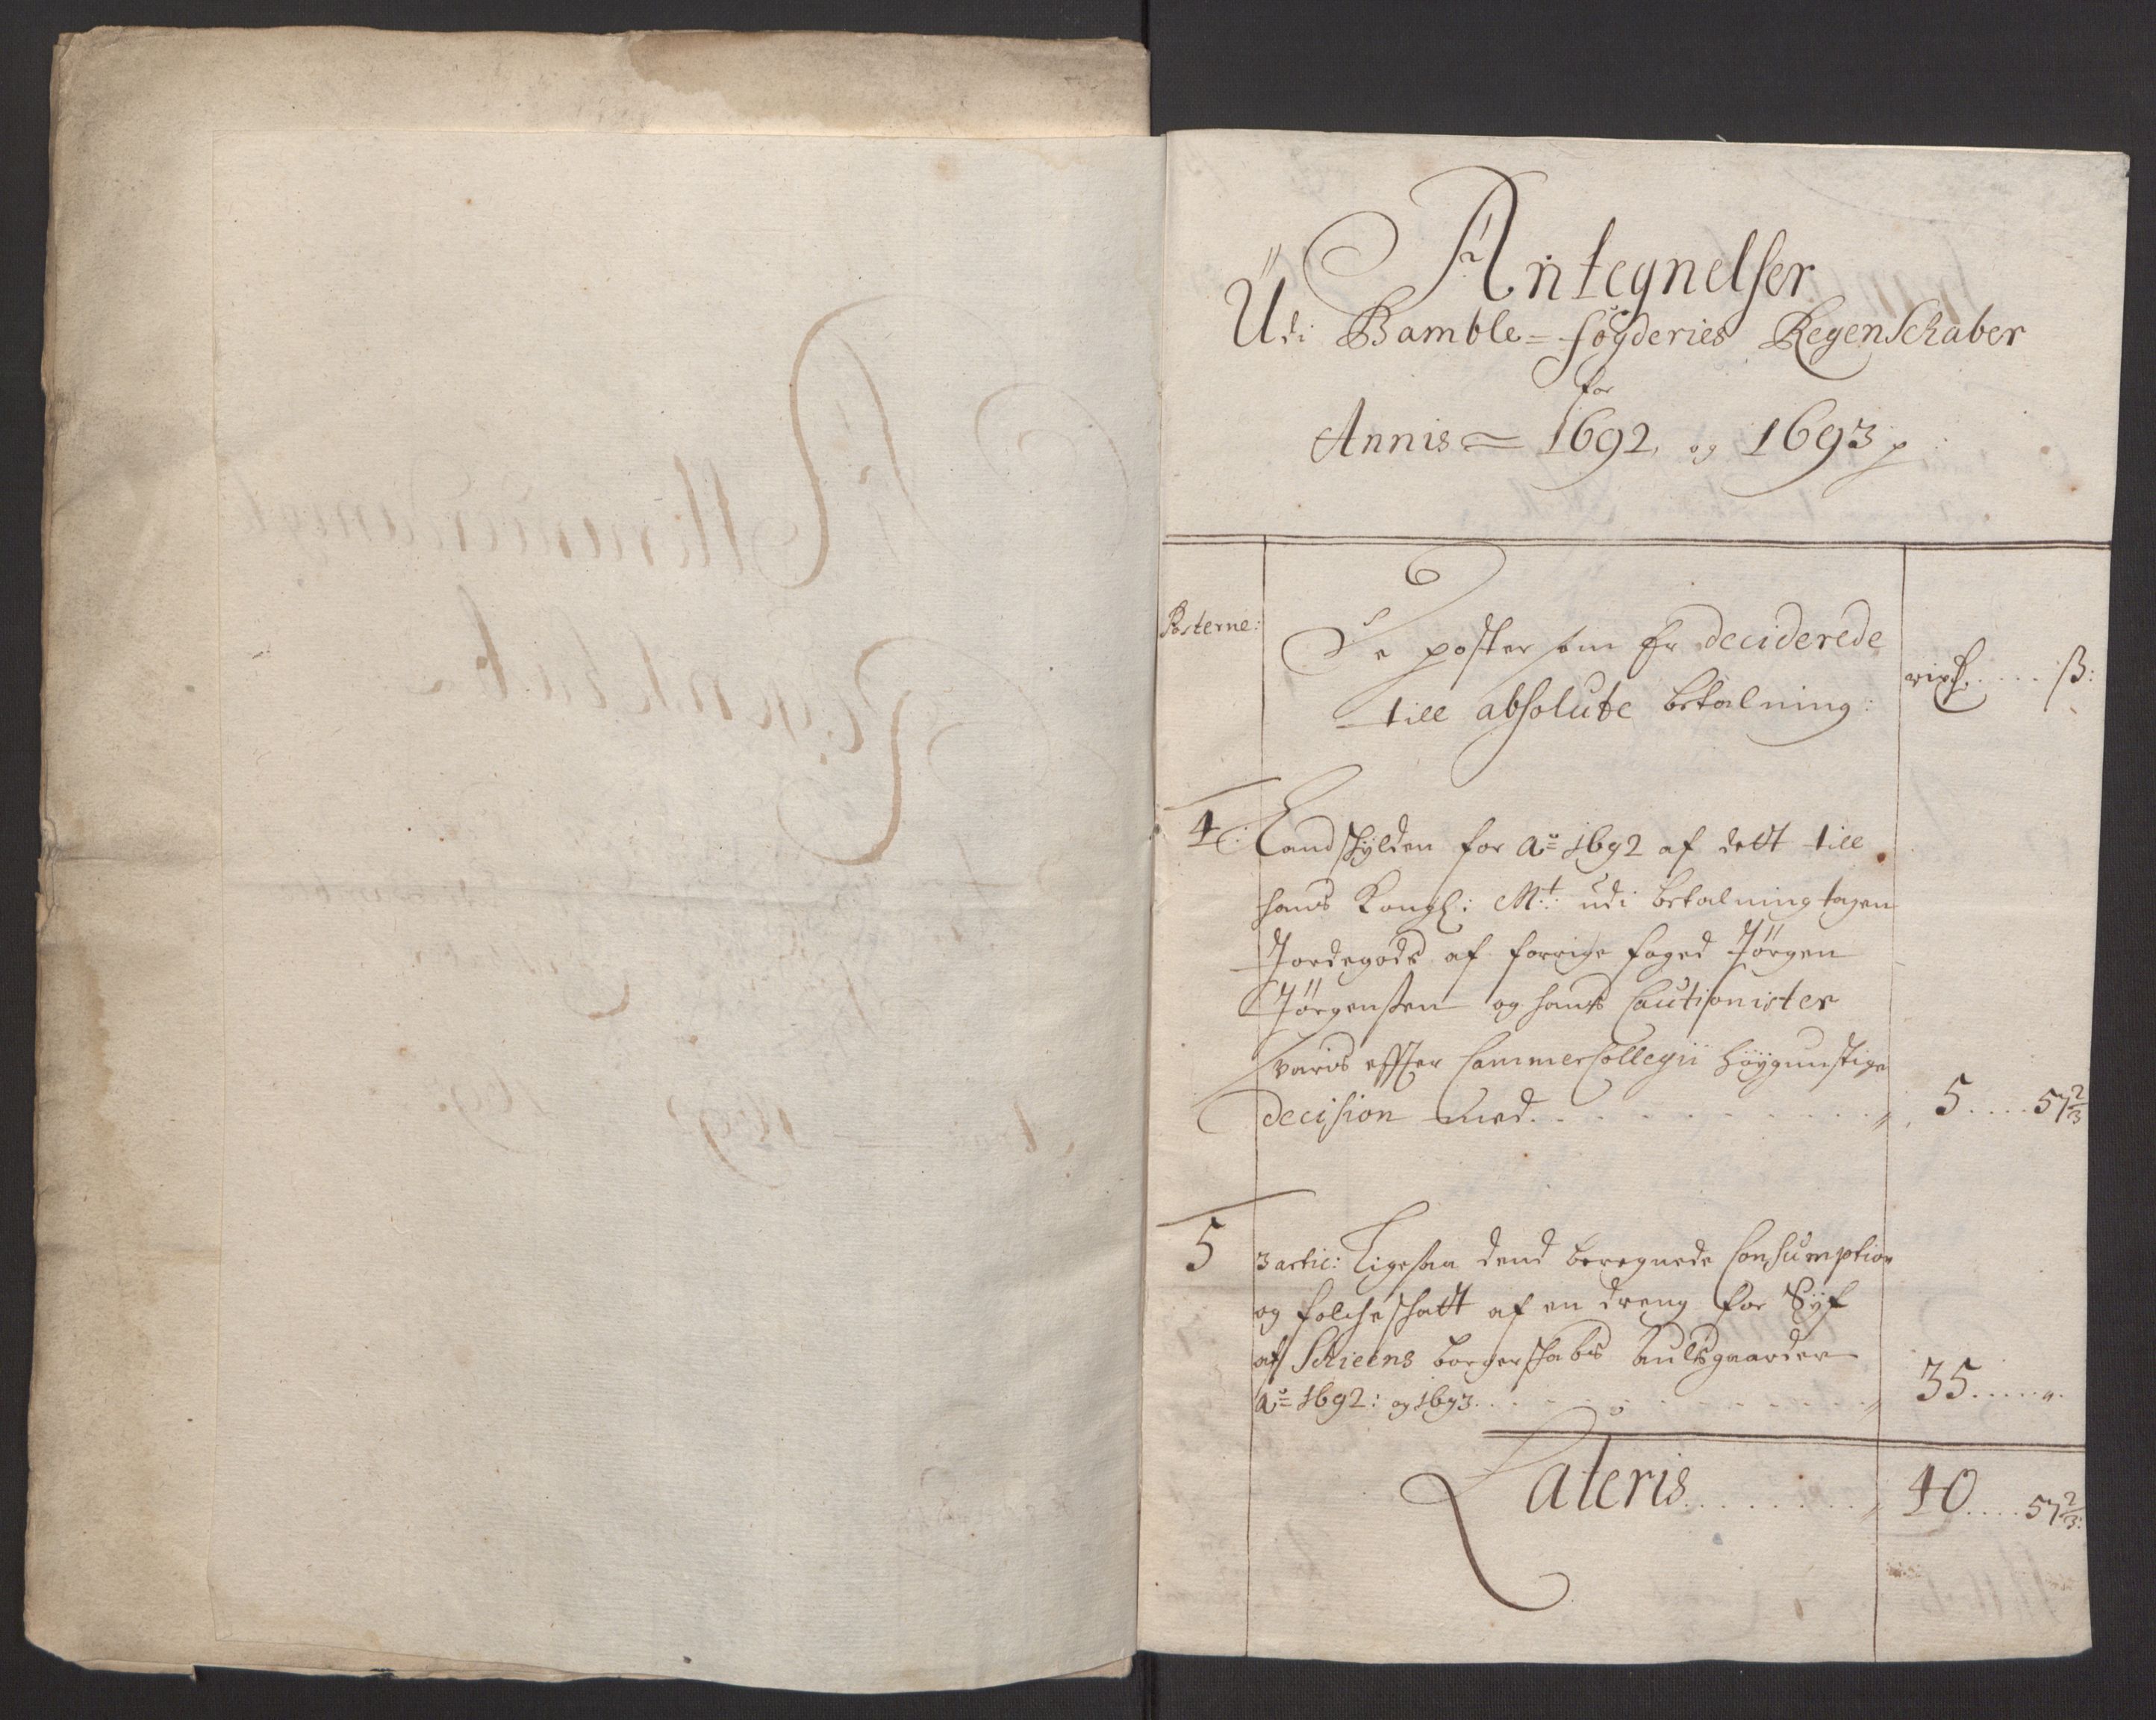 Antegnelser
Udi Bamble= fogderies Regenschaber
for
Annis = 1692, og 1693 p
Posterne:
De poster som Er deciderede
till absolute betalning:
rixd. .... ß:
4: Landskÿlden for Aō 1692 af dett till
hans Kongl: Mt: udi betalning tagen
Jordegods af forrige foged Jörgen
Jörgensßen og hans Cautionister
Decision med . . . . 5 .... 57 2/3
varis effter CammerCollegii höÿgunstige
5 3 artic: Ligesaa dend beregnede Consumption
og folcheskatt af en dreng for
af Schieens borgerskabs Aulsgaarder
Aō 1692: og 1693 . . . . 35 ....
Lateris . . . . 40 .... 57 2/3: